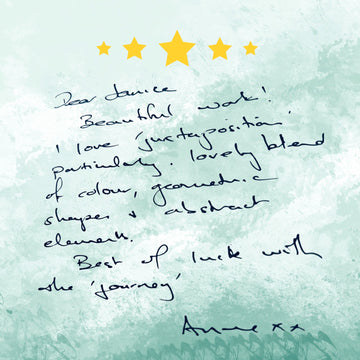 Dear Janice
Beautiful work!
I love 'juxtaposition'
particularly. Lovely blend
of colour, geometric
shapes & abstract
elements.
Best of luck with
the 'journey'
Anne xx